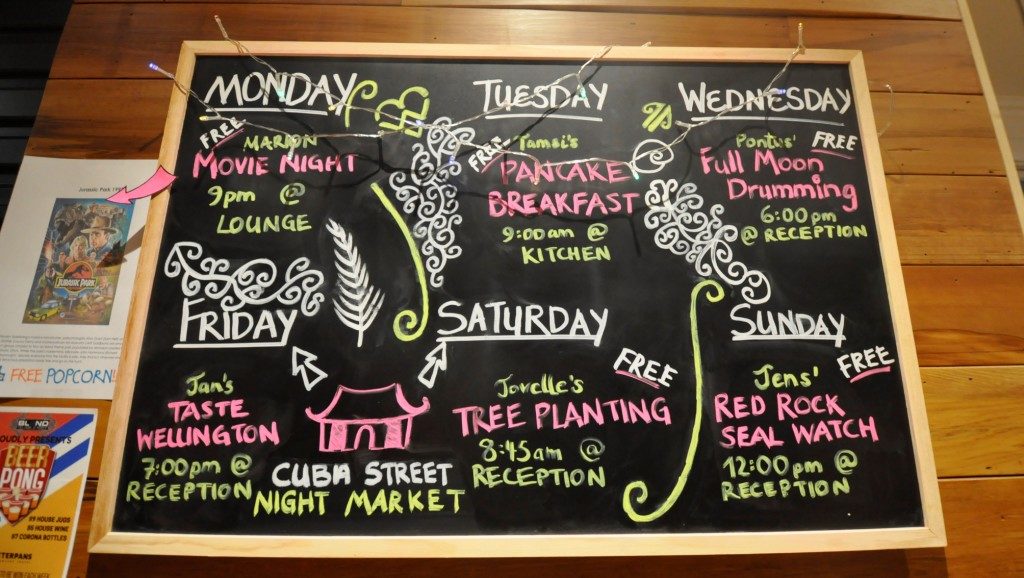 MONDAY
FREE
MARION
MOVIE NIGHT
9pm @
LOUNGE
TUESDAY
FREE
Tamsi's
PANCAKE
BREAKFAST
9:00am @
KITCHEN
WEDNESDAY
Pontus'
FREE
Full Moon
Drumming
6:00pm
@ RECEPTION
FRIDAY
Jan's
TASTE
WELLINGTON
7:00pm @
RECEPTION
CUBA STREET
NIGHT MARKET
SATURDAY
FREE
Jovelle's
TREE PLANTING
8:45am @
RECEPTION
SUNDAY
FREE
Jens'
RED ROCK
SEAL WATCH
12:00pm @
RECEPTION
Jurassic Park
JURASSIC PARK
FREE POPCORN!
BLOND
OUDLY PRESENT'S
BEER
PONG
$9 HOUSE JUGS
$5 HOUSE WINE
$7 CORONA BOTTLES
TERPANS